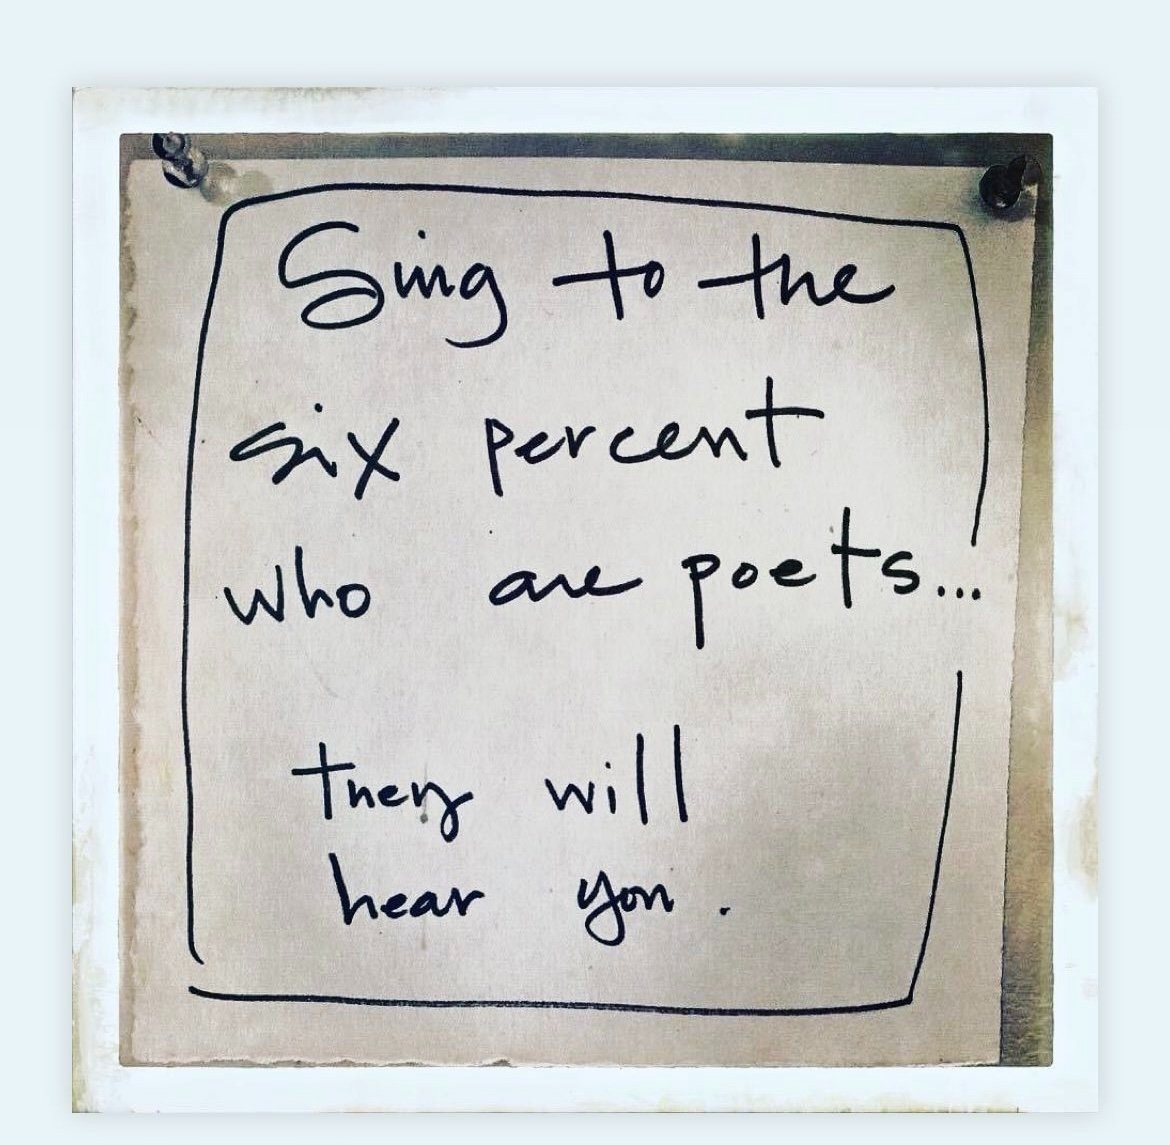 Sing to the
six percent
who are poets...
they will
hear you.